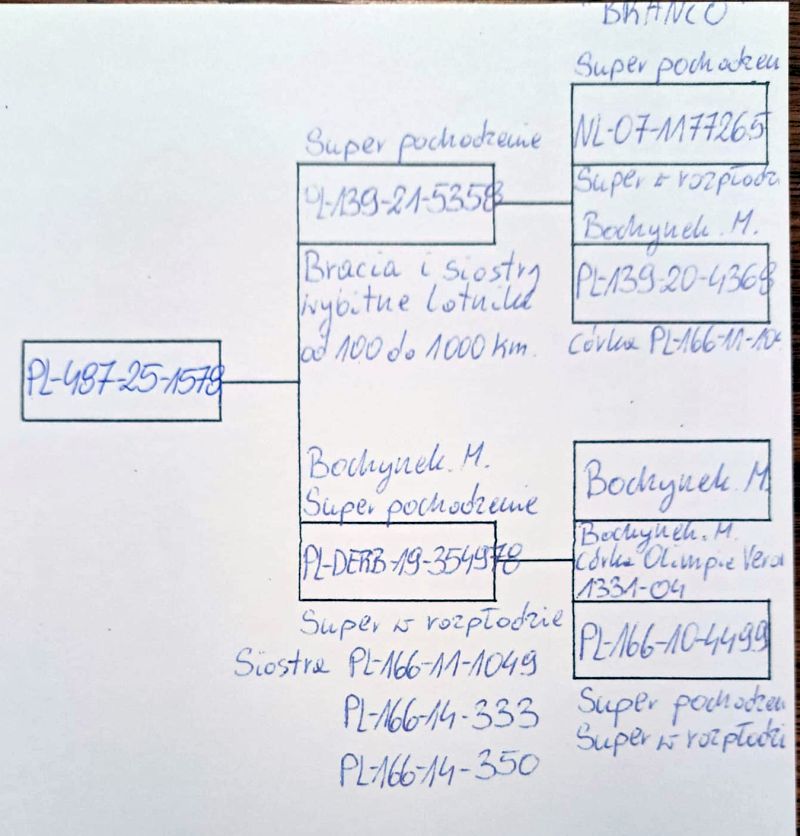 "BRANCO"
Super pochodzen
NL-07-1177265
Super w rozpłodz
Bochynek. M.
PL-139-20-4368
córka PL-166-11-104
Super pochodzenie
PL-139-21-5358
Bracia i siostry
wybitne lotniki
od 100 do 1000 km.
PL-487-25-1578
Bochynek. M.
Super pochodzenie
PL-DERB-19-354978
Super w rozpłodzie
Siostra PL-166-11-1049
PL-166-14-333
PL-166-14-350
Bochynek M.
Bochynek. M.
córka Olimpia Vera
1331-04
PL-166-10-4499
Super pochodzen
Super w rozpłodzi